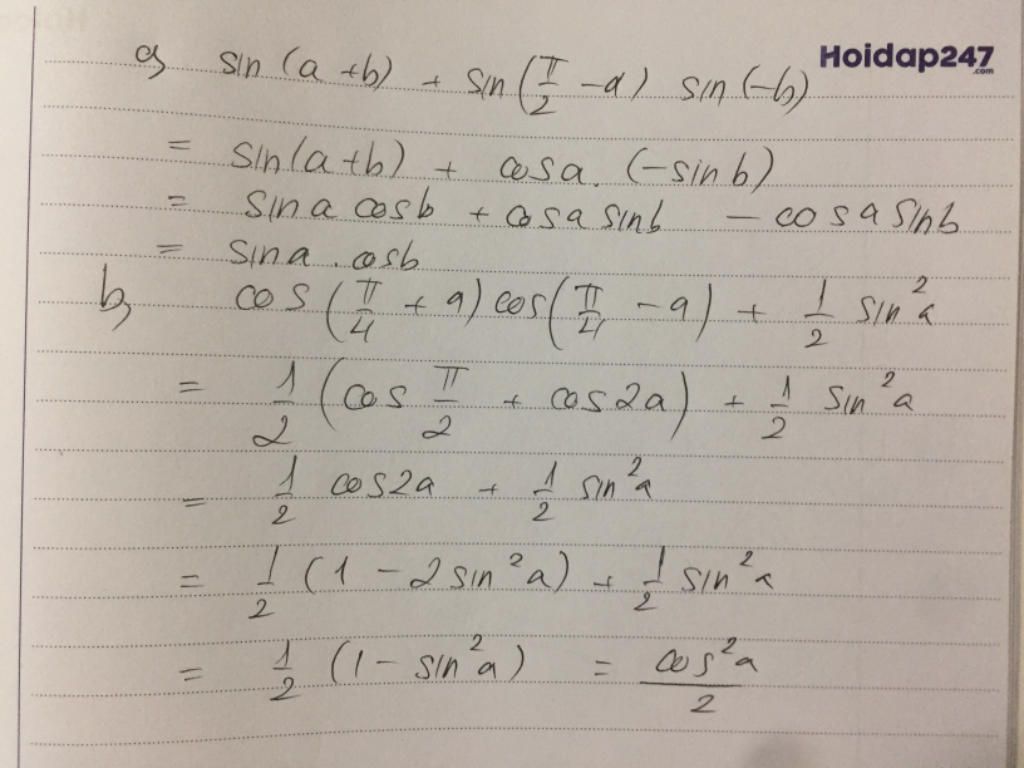 Hoidap247
.com
a) sin(a+b) + sin(π/2 - a) sin(-b)
= sin(a+b) + cosa. (-sinb)
= sina cosb + cosa sinb - cosa sinb
= sina . cosb
b) cos(π/4 + a) cos(π/4 - a) + 1/2 sin²a
= 1/2 (cos π/2 + cos2a) + 1/2 sin²a
= 1/2 cos2a + 1/2 sin²a
= 1/2 (1 - 2sin²a) + 1/2 sin²a
= 1/2 (1 - sin²a) = cos²a/2